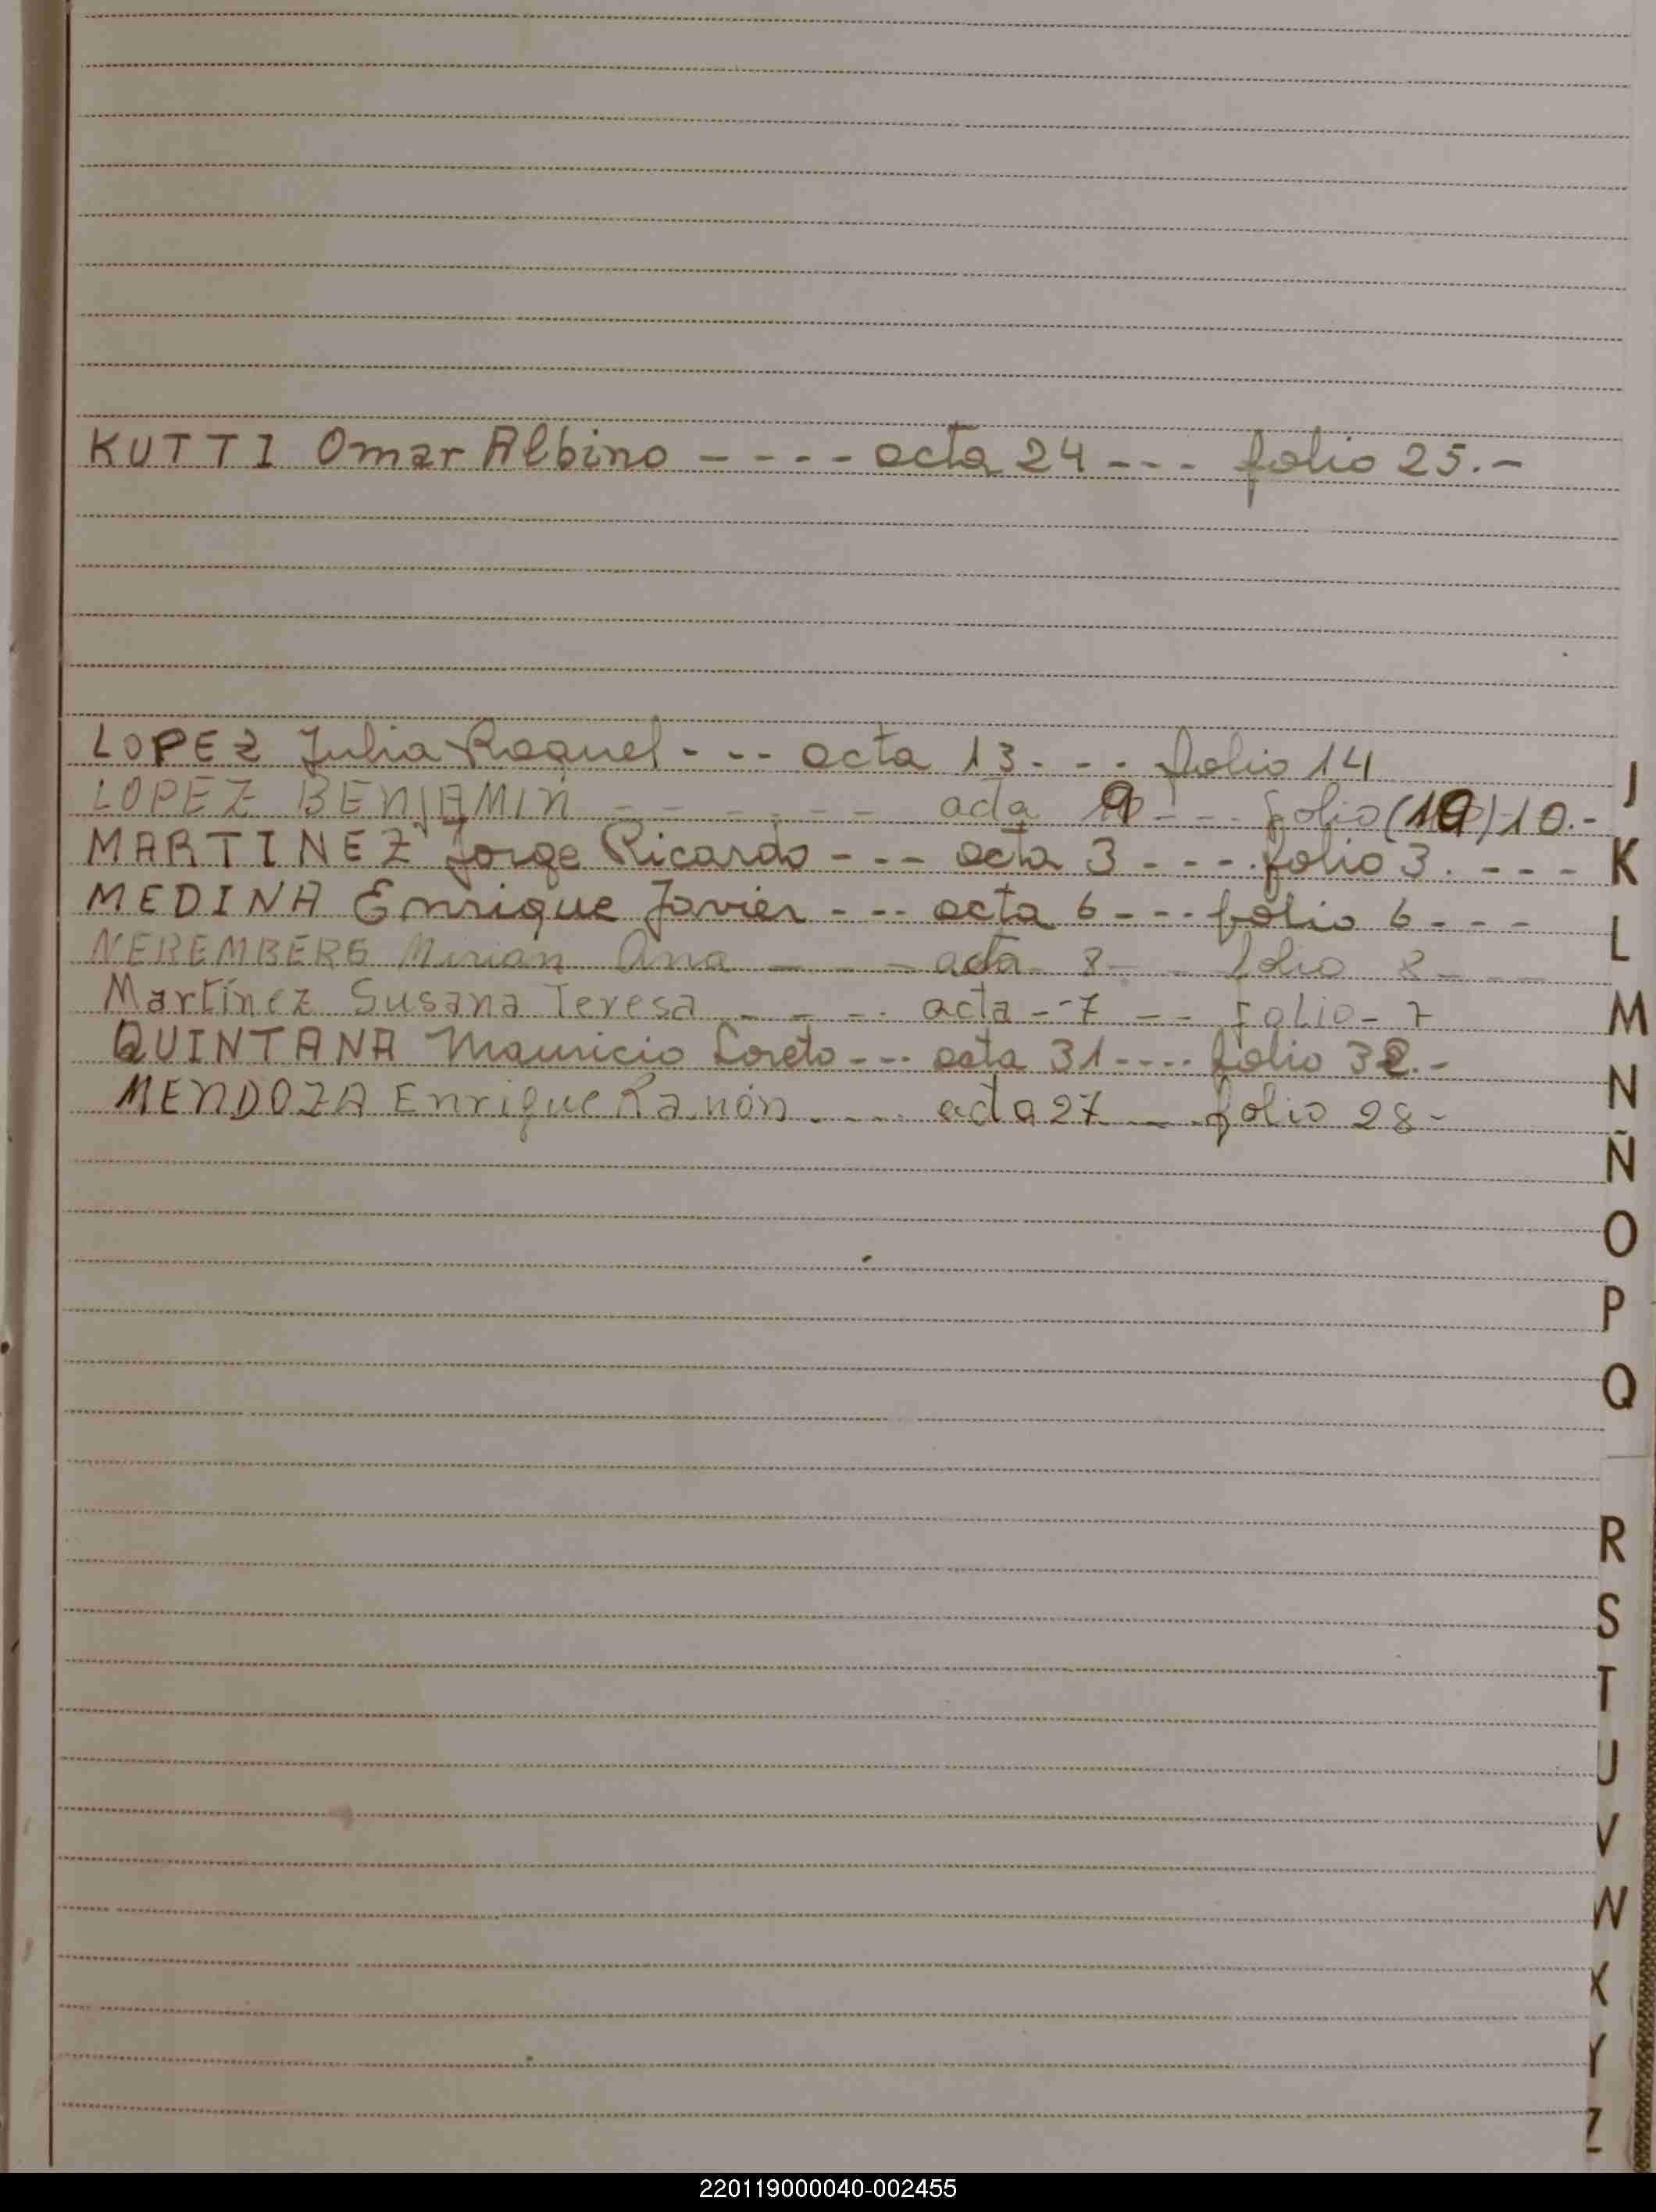 KUTTI Omar Albino - - - - acta 24 - - - folio 25.-
LOPEZ Julia Raquel - - - acta 13 - - - folio 14
LOPEZ BENJAMIN - - - - - - acta 9 - - - folio (19) 10.-
MARTINEZ Jorge Ricardo - - - acta 3 - - - - folio 3. - - -
MEDINA Enrique Javier - - - acta 6 - - - folio 6 - - -
NEREMBERG Mirian Ana - - - acta 8 - - folio 8 - - -
Martínez Susana Teresa - - - - acta - - 7 - - folio - 7
QUINTANA Mauricio Loreto - - - acta 31 - - - - folio 32.-
MENDOZA Enrique Ramón - - - - acta 27 - - folio 28 -
J
K
L
M
N
Ñ
O
P
Q
R
S
T
U
V
W
X
Y
Z
220119000040-002455